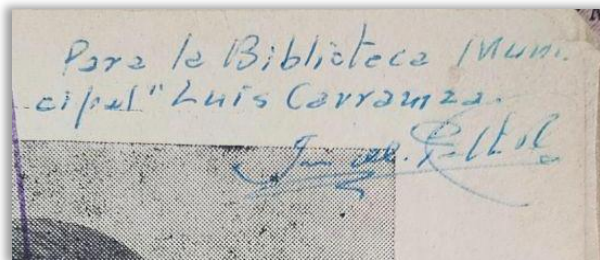 Para la Biblioteca Muni.
cipal "Luis Carranza.